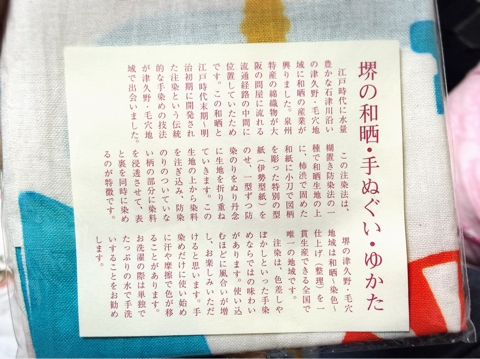 堺の和晒・手ぬぐい・ゆかた
江戸時代に水量
豊かな石津川沿い
の津久野・毛穴地
域に和晒の産業が
興りました。泉州
特産の綿織物が大
阪の問屋に流れる
流通経路の中間に
位置していたため
です。この和晒と
江戸時代末期~明
治初期に開発され
た注染という伝統
的な手染めの技法
が津久野・毛穴地
域で出会いました。
この注染法は、
糊置き防染法の一
種で和晒生地の上
に、柿渋で固めた
和紙に小刀で図柄
を彫った特別の型
紙(伊勢型紙)を
のせ、一型ずつ防
染のりをぬり丹念
に生地を折り重ね
ていきます。この
生地の上から染料
を注ぎ込み、防染
のりのついていな
い柄の部分に染料
を浸透させて、表
と裏を同時に染め
るのが特徴です。
堺の津久野・毛穴
地域は和晒~染色~
仕上げ(整理)を一
貫生産できる全国で
唯一の地域です。
注染は、色差しや
ぼかしといった手染
めならではの味わい
があります。使い込
むほどに風合いが増
し、お楽しみいただ
けると思います。手
染めだけに使い始め
に汗や摩擦で色が移
ることがあります。
お洗濯の際は単独で
たっぷりの水で手洗
いすることをお勧め
します。